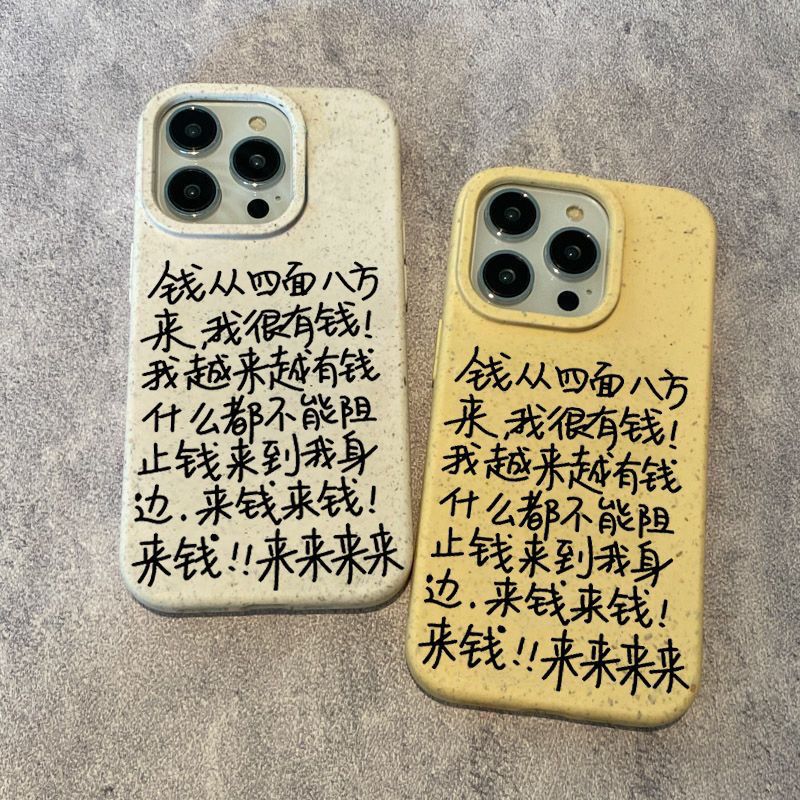 钱从四面八方
来,我很有钱!
我越来越有钱
什么都不能阻
止钱来到我身
边.来钱来钱!
来钱!!来来来来
钱从四面八方
来,我很有钱!
我越来越有钱
什么都不能阻
止钱来到我身
边.来钱来钱!
来钱!!来来来来